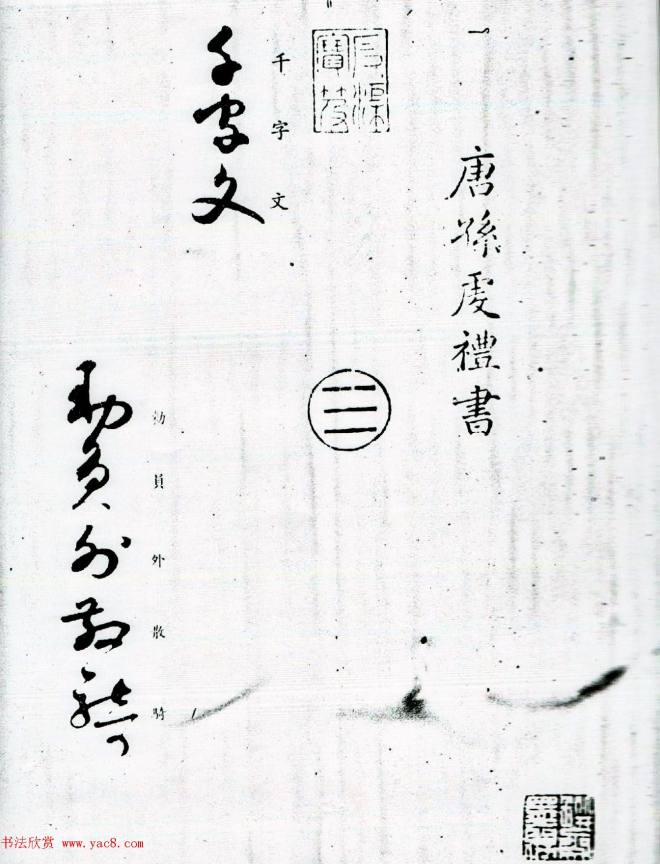 唐孫虔禮書
千字文
千字文
勅員外散騎
勅員外散騎
书法欣赏 www.yac8.com